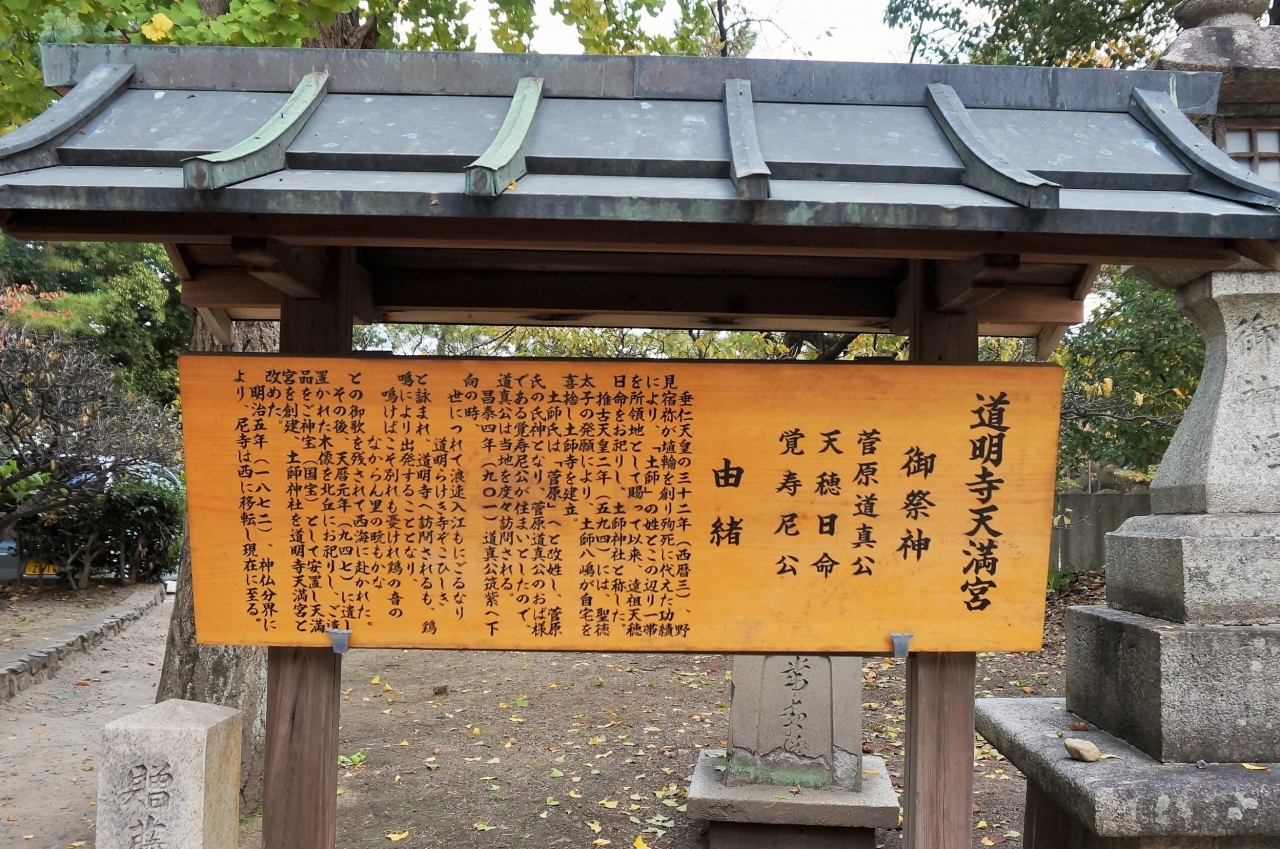 道明寺天満宮
御祭神
菅原道真公
天穂日命
覚寿尼公
由緒
垂仁天皇の三十二年（西暦三）、野
見宿祢が埴輪を創り殉死に代えた功績
により、「土師」の姓とこの辺り一帯
を所領地として賜って以来、遠祖天穂
日命をお祀りし、土師神社と称した。
推古天皇二年（五九四）には、聖徳
太子の発願により、土師八嶋が自宅を
喜捨し土師寺を建立。
土師氏は、「菅原」へと改姓し、菅原
氏の氏神となり、菅原道真公のおば様
である覚寿尼公が住まいとしたので、
道真公は当地を度々訪問される。
昌泰四年（九〇一）道真公筑紫へ下
向の時、
世につれて浪速入江もにごるなり
道明らけき寺ぞこひしき
と詠まれ、道明寺へ訪問されるも、鶏
鳴により出発することとなり、
鳴けばこそ別れも憂けれ鶏の音の
なからん里の暁もかな
との御歌を残されて西海に赴かれた。
その後、天暦元年（九四七）に遺し
置かれた木像を北丘にお祀りし、ご遺
品をご神宝（国宝）として安置し天満
宮を創建、土師神社を道明寺天満宮と
改めた。
明治五年（一八七二）、神仏分界に
より、尼寺は西に移転し現在に至る。
贈